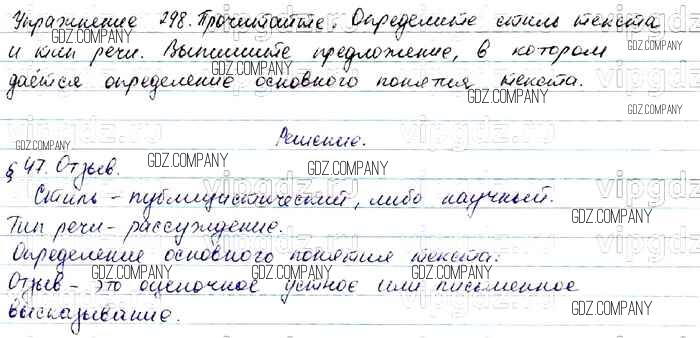 Упражнение 298. Прочитайте. Определите стиль текста
и тип речи. Выпишите предложение, в котором
даётся определение основного понятия текста.
Решение.
§ 47. Отзыв.
Стиль - публицистический, либо научный.
Тип речи - рассуждение.
Определение основного понятия текста:
Отзыв - это оценочное устное или письменное
высказывание.
GDZ.COMPANY
GDZ.COMPANY
GDZ.COMPANY
GDZ.COMPANY
GDZ.COMPANY
GDZ.COMPANY
GDZ.COMPANY
GDZ.COMPANY
GDZ.COMPANY
GDZ.COMPANY
GDZ.COMPANY
GDZ.COMPANY
vipgdz.ru
vipgdz.ru
vipgdz.ru